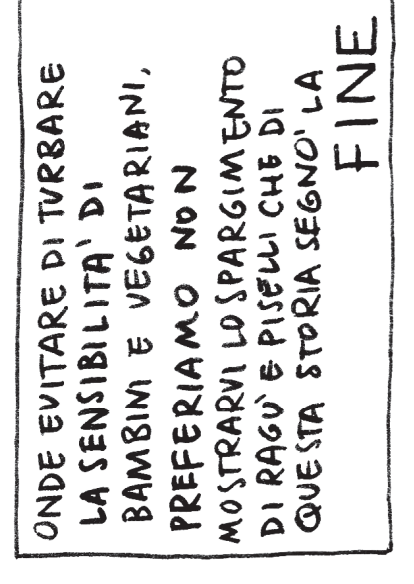 ONDE EVITARE DI TURBARE
LA SENSIBILITA' DI
BAMBINI E VEGETARIANI,
PREFERIAMO NON
MOSTRARVI LO SPARGIMENTO
DI RAGU' E PISELLI CHE DI
QUESTA STORIA SEGNO' LA
FINE